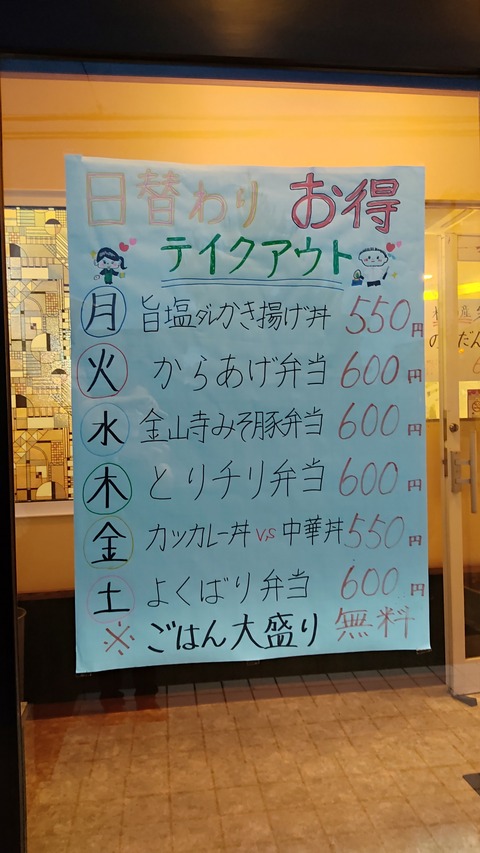 日替わり お得
テイクアウト
月 旨塩ダレかき揚げ丼 550円
火 からあげ弁当 600円
水 金山寺みそ豚弁当 600円
木 とりチリ弁当 600円
金 カツカレー丼 vs 中華丼 550円
土 よくばり弁当 600円
※ ごはん大盛り 無料